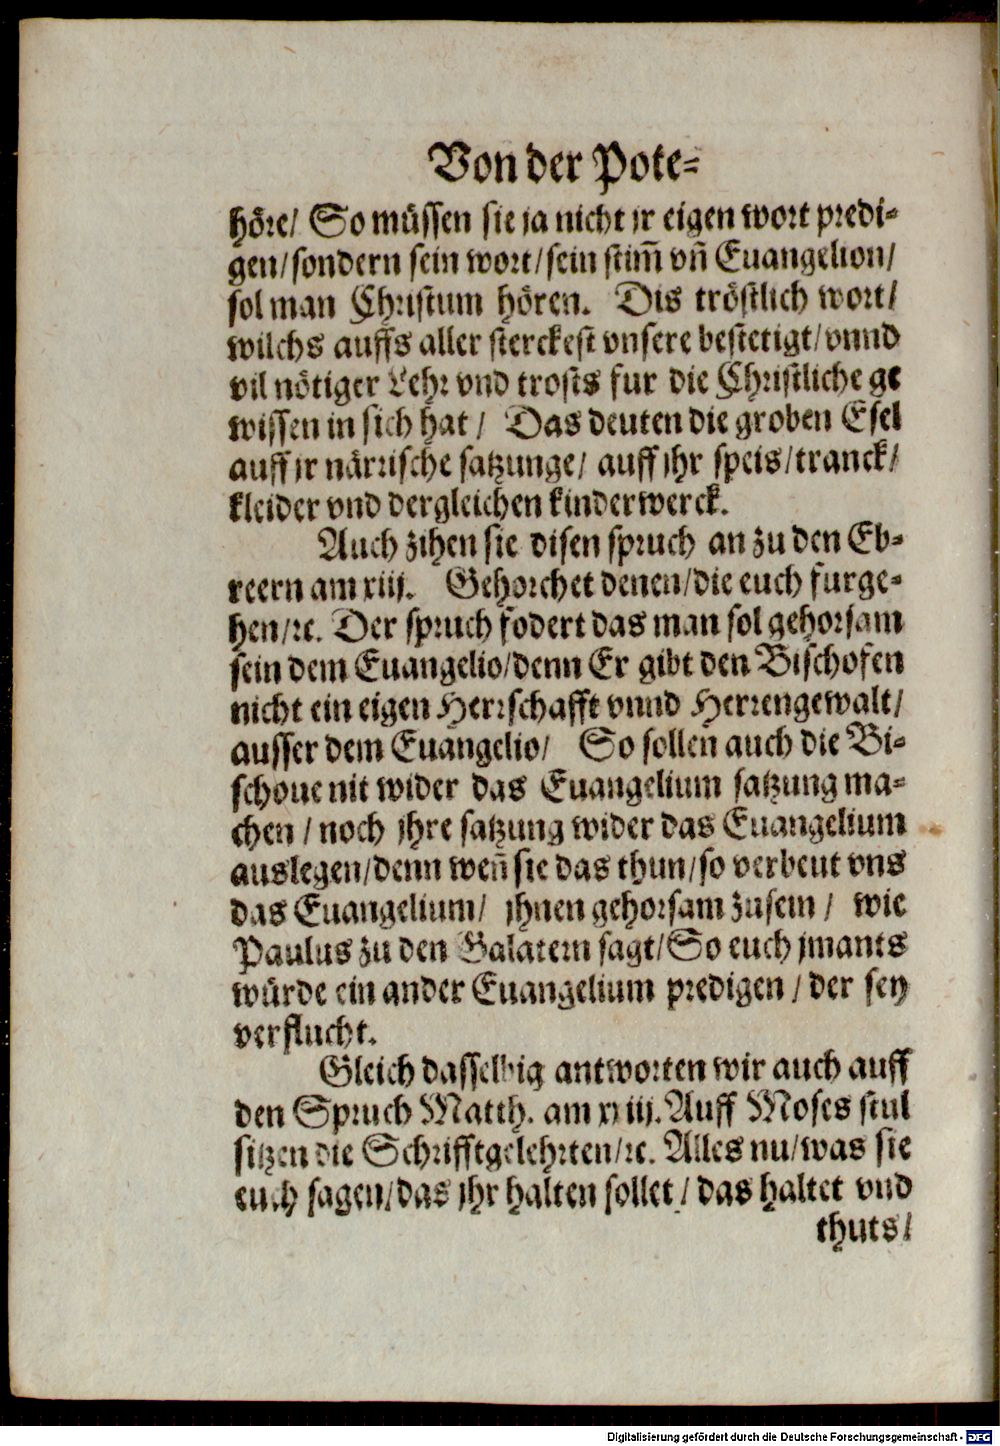 Von der Pote-
höre/ So müssen sie ja nicht jr eigen wort predi-
gen/sondern sein wort/sein stim̃ vñ Euangelion/
sol man Christum hören. Dis tröstlich wort/
wilchs auffs aller sterckest vnsere bestetigt/vnnd
vil nötiger Lehr vnd trosts fur die Christliche ge
wissen in sich hat/ Das deuten die groben Esel
auff jr närrische satzunge/ auff jhr speis/tranck/
kleider vnd dergleichen kinderwerck.
Auch zihen sie disen spruch an zu den Eb-
reern am xiij. Gehorchet denen/die euch furge-
hen/ꝛc. Der spruch fodert das man sol gehorsam
sein dem Euangelio/denn Er gibt den Bischofen
nicht ein eigen Herrschafft vnnd Herrengewalt/
ausser dem Euangelio/ So sollen auch die Bi-
schoue nit wider das Euangelium satzung ma-
chen/noch jhre satzung wider das Euangelium
auslegen/denn weñ sie das thun/so verbeut vns
das Euangelium/ jhnen gehorsam zusein/ wie
Paulus zu den Galatern sagt/So euch jmants
würde ein ander Euangelium predigen/der sey
verflucht.
Gleich dasselbig antworten wir auch auff
den Spruch Matth. am xxiij. Auff Moses stul
sitzen die Schrifftgelehrten/ꝛc. Alles nu/was sie
euch sagen/das jhr halten sollet/das haltet vnd
thuts/
Digitalisierung gefördert durch die Deutsche Forschungsgemeinschaft - DFG